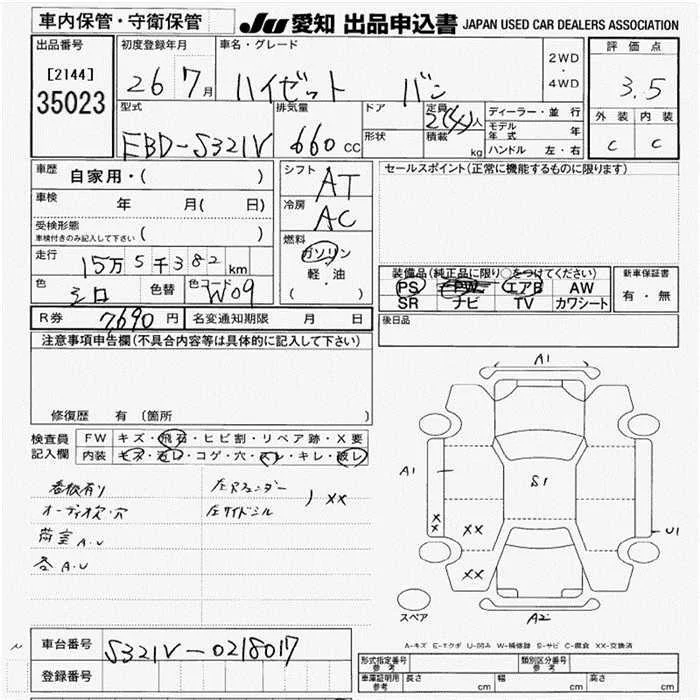 車内保管・守衛保管
JU 愛知 出品申込書 JAPAN USED CAR DEALERS ASSOCIATION
出品番号
[2144]
35023
初度登録年月
26 7月
車名・グレード
ハイゼット バン
2WD
・
4WD
評価点
3.5
外装 内装
C C
型式
EBD-S321V
排気量
660 CC
ドア
形状
定員
2(4)人
積載
kg
ディーラー・並行
モデル年式 年
ハンドル 左・右
車歴
自家用・( )
車検
年 月( 日)
受検形態
車検付きのみ記入して下さい ( )
走行
15万5千382km
色
シロ
色替
色コード
W09
シフト
AT
冷房
AC
燃料
ガソリン
軽・油
( )
セールスポイント(正常に機能するものに限ります)
装備品(純正品に限り○をつけてください)
PS PW エアB AW
SR ナビ TV カワシート
新車保証書
有・無
R券 7,690円
名変通知期限 月 日
後日品
注意事項申告欄(不具合内容等は具体的に記入して下さい)
修復歴 有(箇所
検査員
記入欄
FW キズ・飛石・ヒビ割・リペア跡・X要
内装 キズ・汚レ・コゲ・穴・スレ・キレ・破レ
看板有り
オーディオ欠・穴
荷室A.U
各A.U
左Rフェンダー
左サイドシル
) XX
A1
A1
S1
X
X
XX
XX
U1
A2
スペア
A-キズ E-エクボ U-凹み W-補修跡 S-サビ C-腐食 XX-交換済
車台番号
S321V-0218017
登録番号
型式指定番号
参考
類別区分番号
参考
車庫証明用
参考
長さ cm
幅 cm
高さ cm